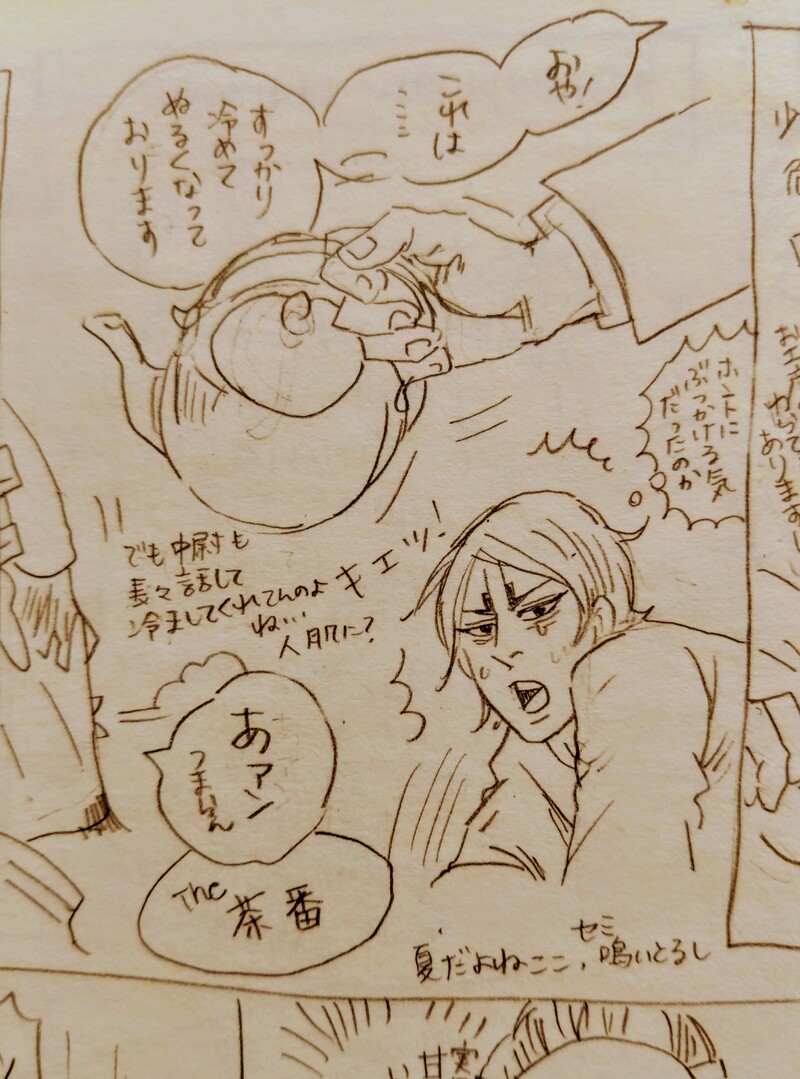 おや!
これは
……
すっかり
冷めて
ぬるくなって
おります
ホントに
ぶっかける気
だったのか
キェッ!
でも中尉すも
長々話して
冷ましてくれてんのよ
ね…
人肌に?
あァン
つまらん
The
茶番
セミ
夏だよねここ、鳴いとるし